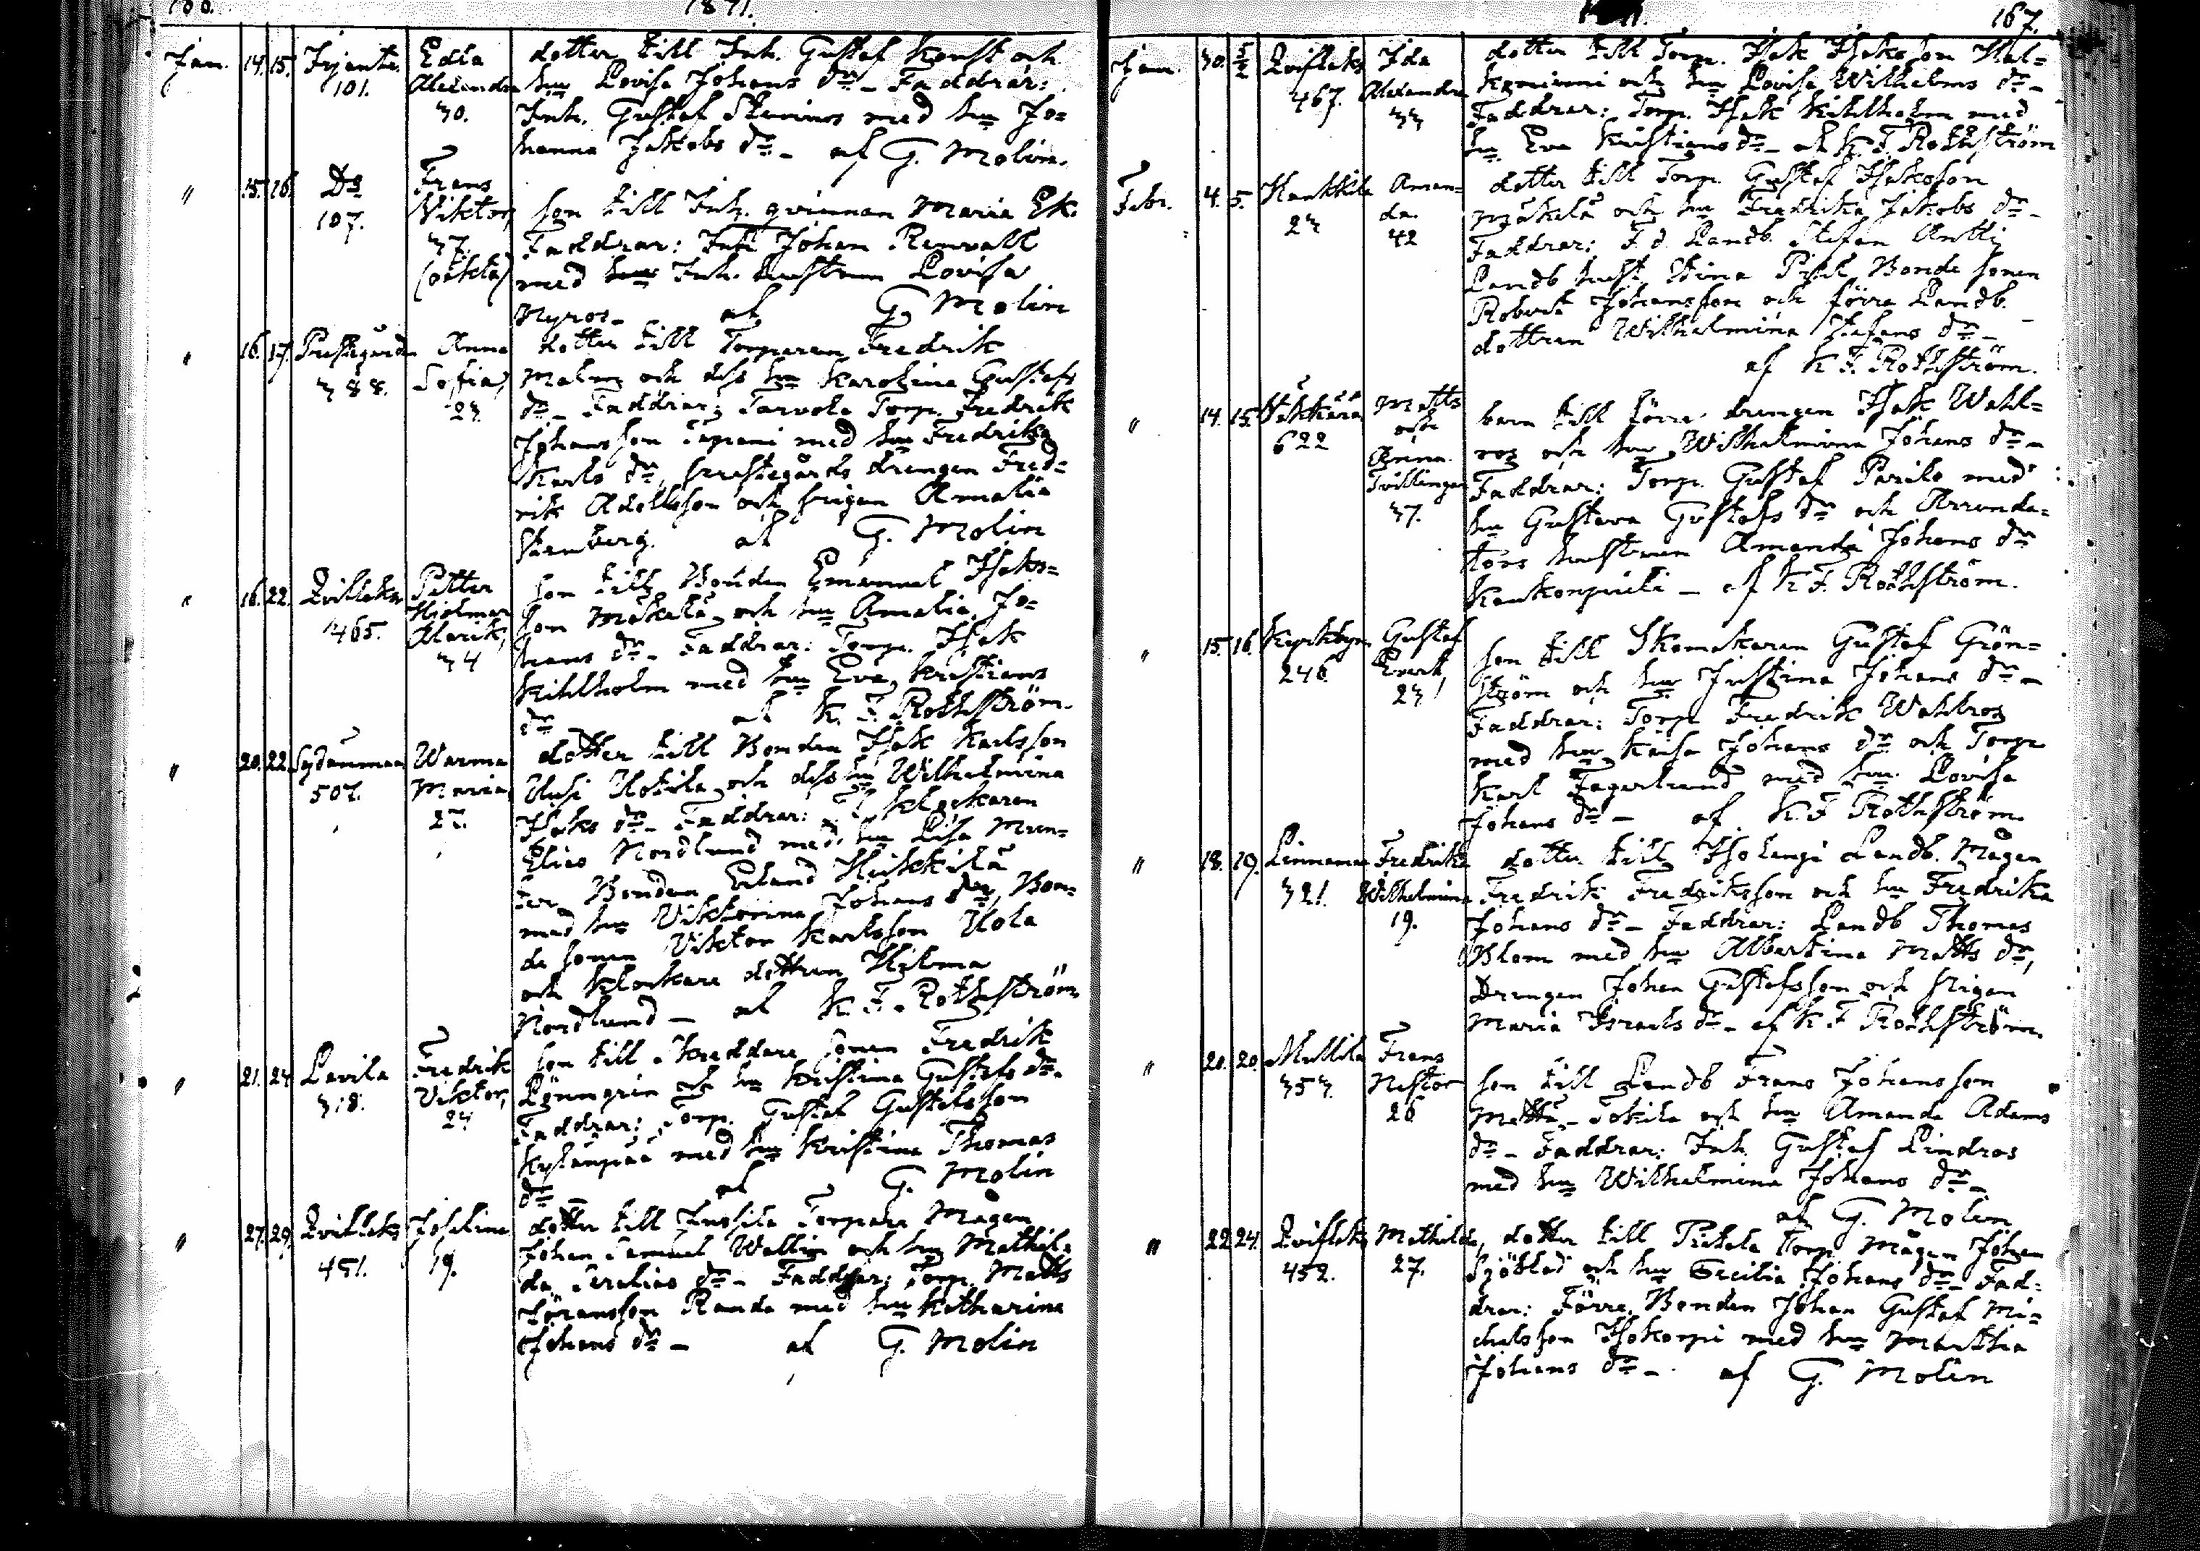 1871.
Jan. 14. 15. Frjents. 101. Edla Alexandra 30.
dotter till Inh. Gustaf Konst och
hu Lovisa Johans dr - Faddrar:
Inh. Gustaf Stenroos med hu Jo=
hanna Jakobs dr - af G. Molin.
" 15. 16. Do 107. Frans Viktor, 37. (oäkta)
son till Inh. qvinnan Maria Ek.
Faddrar: Inh Johan Renvall
med Inh. hustrun Lovisa
Nyros - af G. Molin
" 16. 17. Prestegården 388. Anna Sofia, 23.
dotter till Torparen Fredrik
Malm och dess hu Karolina Gustafs
dr - Faddrar: Tarvola Torp. Fredrik
Johansson Tapani med hu Fredrika
Karls dr, prestegårds drengen Fred=
rik Adolfsson och pigan Amalia
Stenberg. af G. Molin
" 16. 22. Qvifleks 465. Petter Hjelmar Alarik, 34
son till Bonden Emanuel Isaks=
son Mäkelä och hu Amalia Jo=
hans dr - Faddrar: Torp. Isak
Kihlholm med hu Eva Kristians
dr af K. F. Rothström.
" 20. 22. Sydänmaa 507. Warma Maria, 27.
dotter till Bonden Isak Karlsson
Uusi Uotila och dess hu Wilhelmina
Isaks dr - Faddrar: Klockaren
Elias Nordlund med hu Lisa Mun=
ter, Bonden Erland Heikkilä
med hu Viktorina Johans dr, Bon=
de sonen Viktor Karlsson Uola
och Klockare dottren Hilma
Nordlund - af K. F. Rothström
" 21. 24. Lavila 318. Fredrik Viktor, 24
son till Skreddare sonen Fredrik
Lönngrén och hu Kristina Gustafs dr.
Faddrar: Torp. Gustaf Gustafsson
Kylänpää med hu Kristina Thomas
dr af G. Molin
" 27. 29. Qvifleks 451. Josefina 19.
dotter till Jussila Torpare Mågen
Johan Samuel Wallin och hu Mathil=
da Serelius dr - Faddrar: Torp. Matts
Göransson Randa med hu Katharina
Johans dr - af G. Molin
167.
Jan. 30. 5/2 Qvifleks 467. Ida Alexandra 33
dotter till Torp. Isak Isaksson Kal=
koniemi och hu Lovisa Wilhelms dr -
Faddrar: Torp. Isak Kihlholm med
hu Eva Kristians dr - af K. F. Rothström
Febr. 4. 5. Kankkila 23 Aman= da. 42
dotter till Torp. Gustaf Isaksson
Mäkelä och hu Fredrika Jakobs dr -
Faddrar: F. d. Landb. Stefan Antti,
Landb. hust. Stina Pihl Bonde sonen
Robert Johansson och förra Landb.
dottren Wilhelmina Stefans dr -
af K. F. Rothström.
" 14. 15. Väkkärä 622 Matts och Anna Tvillingar 37.
barn till förre drengen Isak Wahl=
ros och hu Wilhelmina Johans dr -
Faddrar: Torp. Gustaf Parila med
hu Gustava Gustafs dr och Arrenda=
tors hustrun Amanda Johans dr
Kankonpieti - af K. F. Rothström.
" 15. 16. Kyrkbyn 246. Gustaf Evert, 23
son till Skomakaren Gustaf Grön=
ström och hu Justina Johans dr -
Faddrar: Torp. Fredrik Wahlros
med hu Kaisa Johans dr och Torp.
Karl Fagerlund med hu Lovisa
Johans dr - af K. F. Rothström
" 18. 19. Linnamaa 321. Fredrika Wilhelmina 19.
dotter till Isotengi Landb. Mågen
Fredrik Fredriksson och hu Fredrika
Johans dr - Faddrar: Landb Thomas
Blom med hu Albertina Matts dr,
Drengen Johan Gustafsson och pigan
Maria Israels dr - af K. F. Rothström
" 20. 20. Mullila 353. Frans Nestor 26
son till Landb Frans Johansson
Mattu-Tokila och hu Amanda Adams
dr - Faddrar: Inh. Gustaf Lindros
med hu Wilhelmina Johans dr -
af G. Molin
" 22 24. Qvifleks 452. Mathilda, 27.
dotter till Torp Mågen Johan
Sjöblad och hu Cecilia Johans dr - Fad=
drar: Förre Bonden Johan Gustaf Mi=
chelsson Isokorpi med hu Martha
Johans dr - af G. Molin